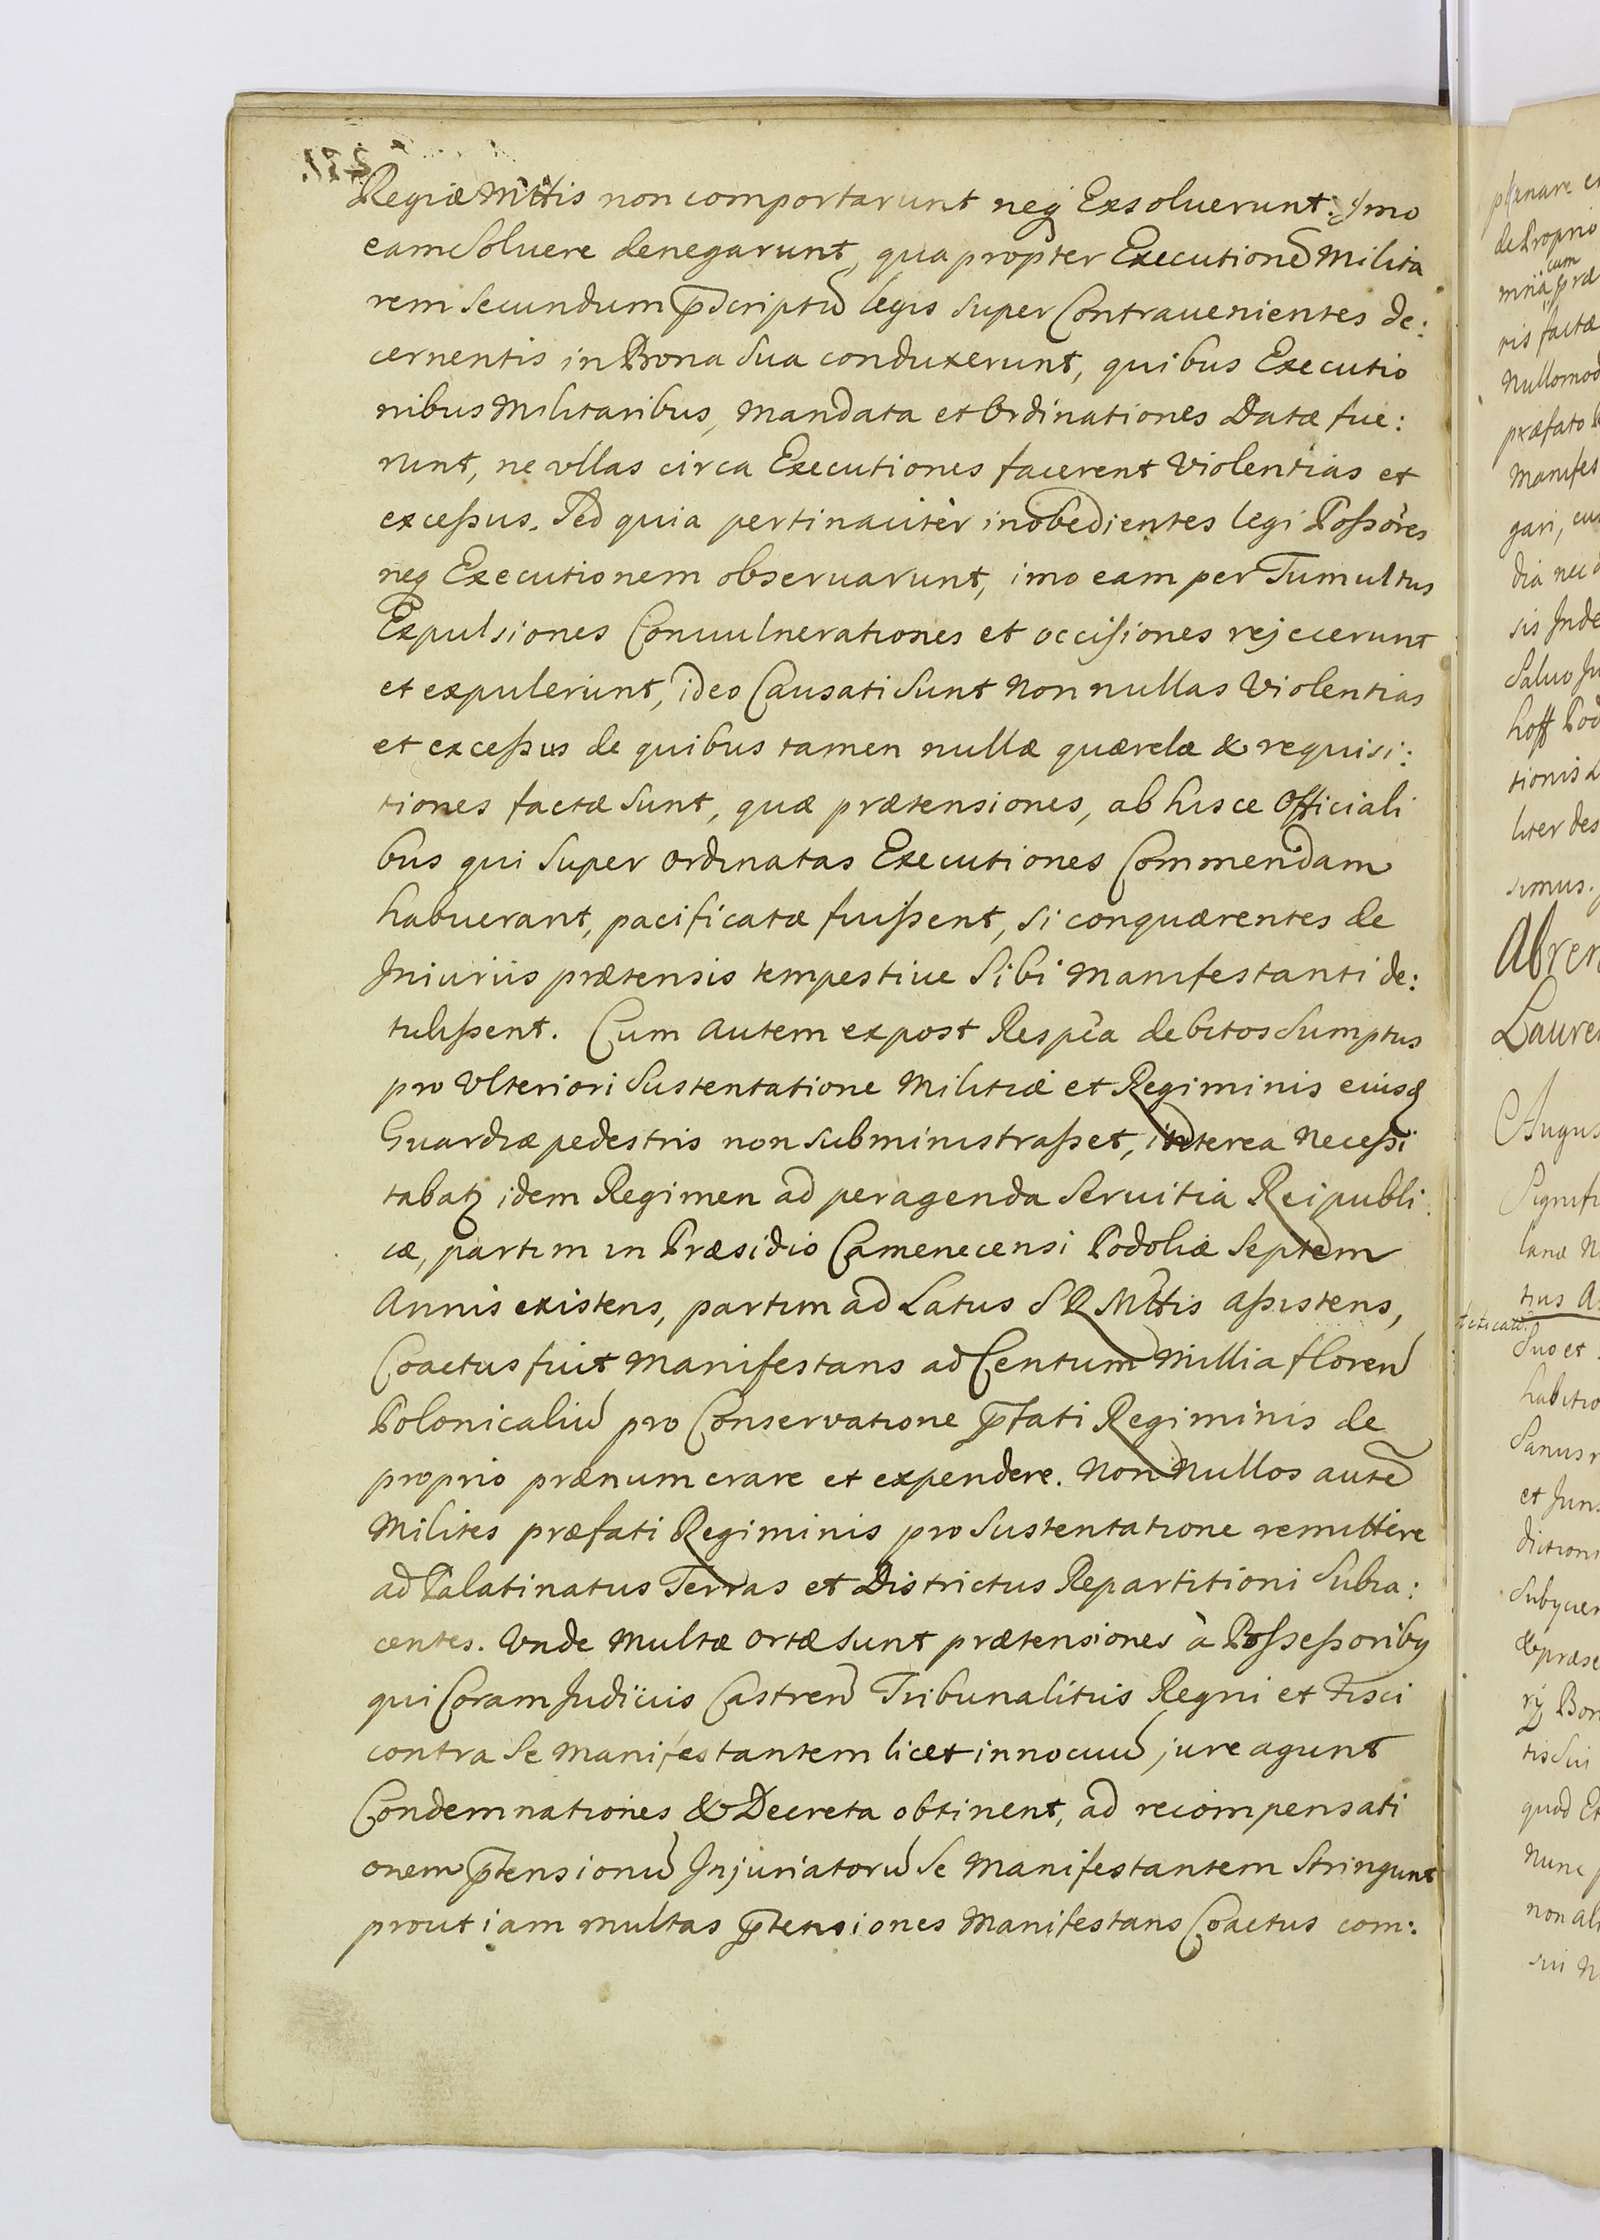 Regiæ Mttis non comportarunt neq Exsoluerunt. Imo
eam Soluere denegarunt, qua propter Executionē Milita
rem Secundum p̄scriptū legis super Contrauenientes de:
cernentis in Bona Sua conduxerunt, quibus Executio
nibus Militaribus, Mandata et Ordinationes Datæ fue:
runt, ne vllas circa Executiones facerent Violentias et
excessus. Sed quia pertinacitèr inobedientes legi Possores
neq Executionem obseruarunt, imo eam per Tumultus
Expulsiones Conuulnerationes et occisiones rejecerunt
et expulerunt, ideo Causati Sunt Non nullas Violentias
et excessus de quibus tamen nullæ quærelæ & requisi:
tiones factæ Sunt, quæ prætensiones, ab hisce Officiali
bus qui Super ordinatas Executiones Commendam
habuerant, pacificatæ fuissent, Si conquærentes de
Iniuriis prætensis tempestiue Sibi Manifestanti de:
tulissent. Cum Autem expost Respca debitos Sumptus
pro Vlteriori Sustentatione Militiæ et Regiminis eiusq
Guardiæ pedestris non Subministrasset, interea Necessi
tabatq idem Regimen ad peragenda Seruitia Reipubli:
cæ, partim in Præsidio Camenecensi Podoliæ Septem
Annis existens, partim ad Latus S R Mttis Assistens,
Coactus fuit Manifestans ad Centum Millia florenū
Polonicaliū pro Conservatione p̄fati Regiminis de
proprio prænumerare et expendere. Non Nullos autē
Milites præfati Regiminis pro Sustentatione remittere
ad Palatinatus Terras et Districtus Repartitioni Subia:
centes. Vnde Multæ ortæ Sunt prætensiones à Possessoribq
qui Coram Judiciis Castren Tribunalitiis Regni et Fisci
contra Se Manifestantem licet innocuū jure agunt
Condemnationes & Decreta obtinent, ad recompensati
onem p̄tensionū Injuriatorū Se Manifestantem Stringunt
prout iam multas p̄tensiones Manifestans Coactus com: